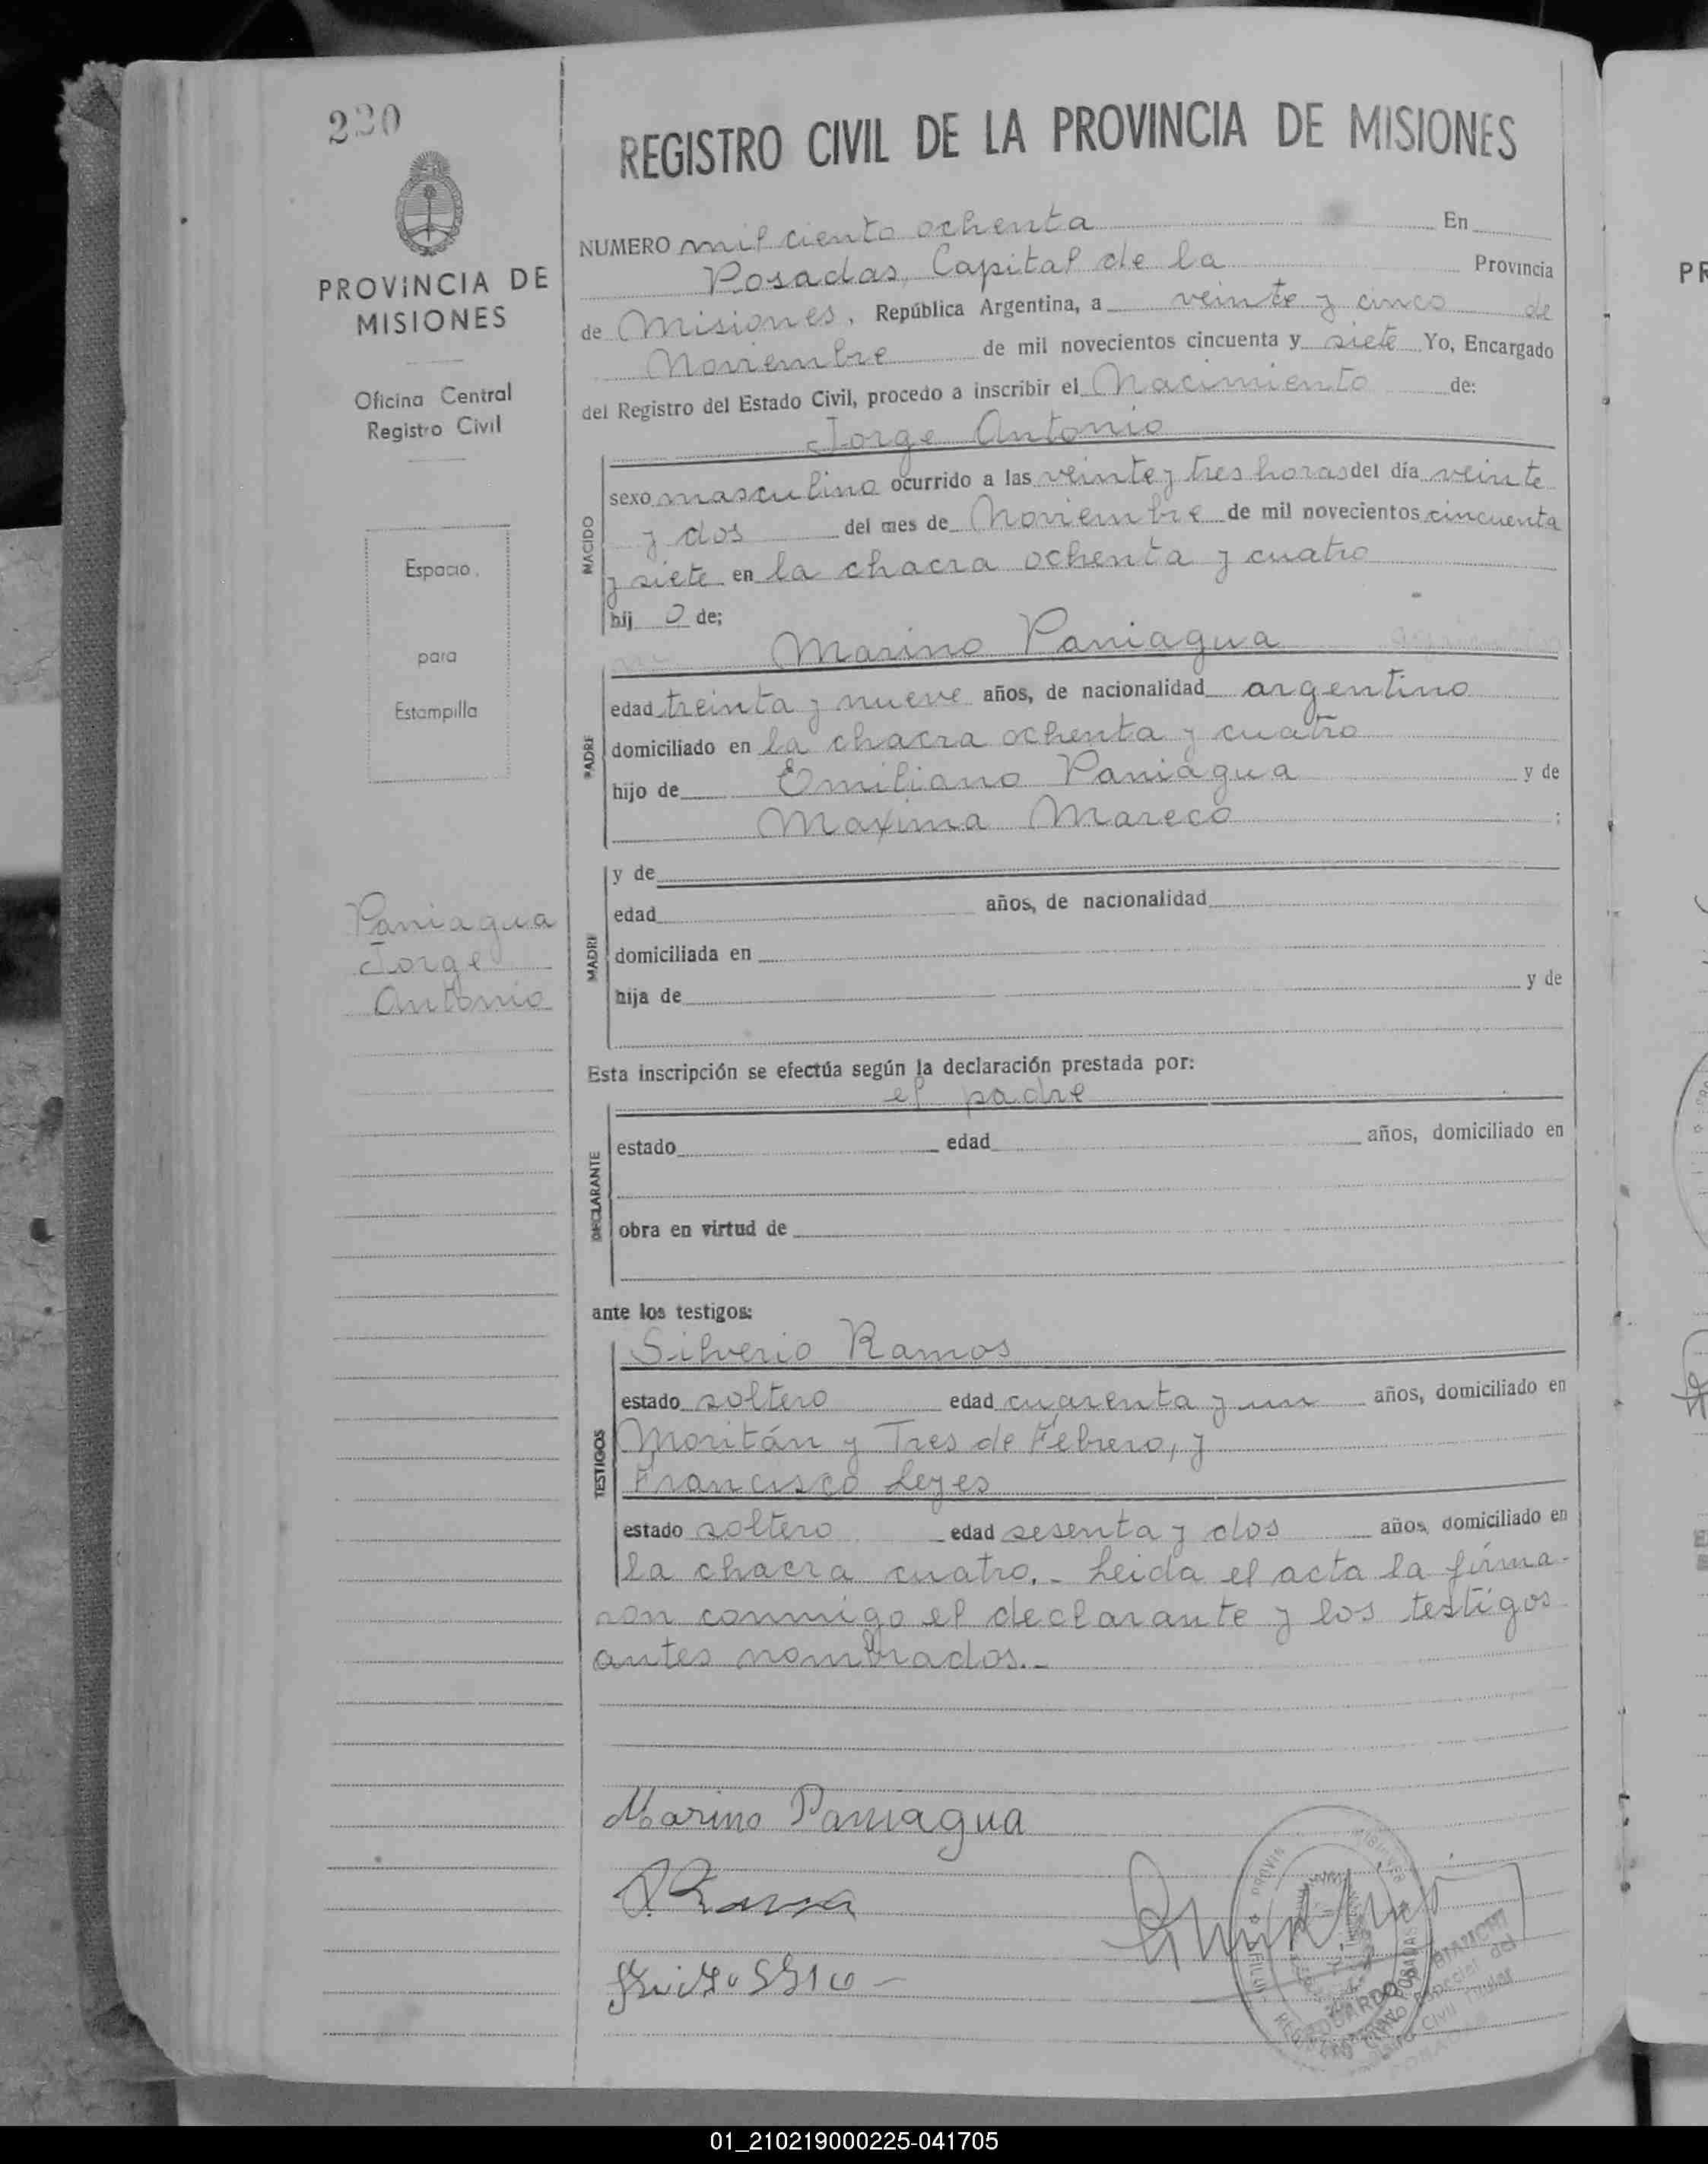 220
REGISTRO CIVIL DE LA PROVINCIA DE MISIONES
PROVINCIA DE
MISIONES
Oficina Central
Registro Civil
Espacio
para
Estampilla
Paniagua
Jorge
Antonio
NUMERO mil ciento ochenta En
Posadas, Capital de la Provincia
de Misiones, República Argentina, a veinte y cinco de
Noviembre de mil novecientos cincuenta y siete Yo, Encargado
del Registro del Estado Civil, procedo a inscribir el Nacimiento de:
Jorge Antonio
NACIDO
sexo masculino ocurrido a las veinte y tres horas del día veinte
y dos del mes de Noviembre de mil novecientos cincuenta
y siete en la chacra ochenta y cuatro
hij o de;
Marino Paniagua
PADRE
edad treinta y nueve años, de nacionalidad argentino
domiciliado en la chacra ochenta y cuatro
hijo de Emiliano Paniagua y de
Maxima Mareco ;
MADRE
y de
edad años, de nacionalidad
domiciliada en
hija de y de
Esta inscripción se efectúa según la declaración prestada por:
el padre
DECLARANTE
estado edad años, domiciliado en
obra en virtud de
ante los testigos:
TESTIGOS
Silverio Ramos
estado soltero edad cuarenta y un años, domiciliado en
Moritán y Tres de Febrero, y
Francisco Leyes
estado soltero edad sesenta y dos años, domiciliado en
la chacra cuatro.- Leida el acta la firma-
ron conmigo el declarante y los testigos
antes nombrados.-
Marino Paniagua
01_210219000225-041705